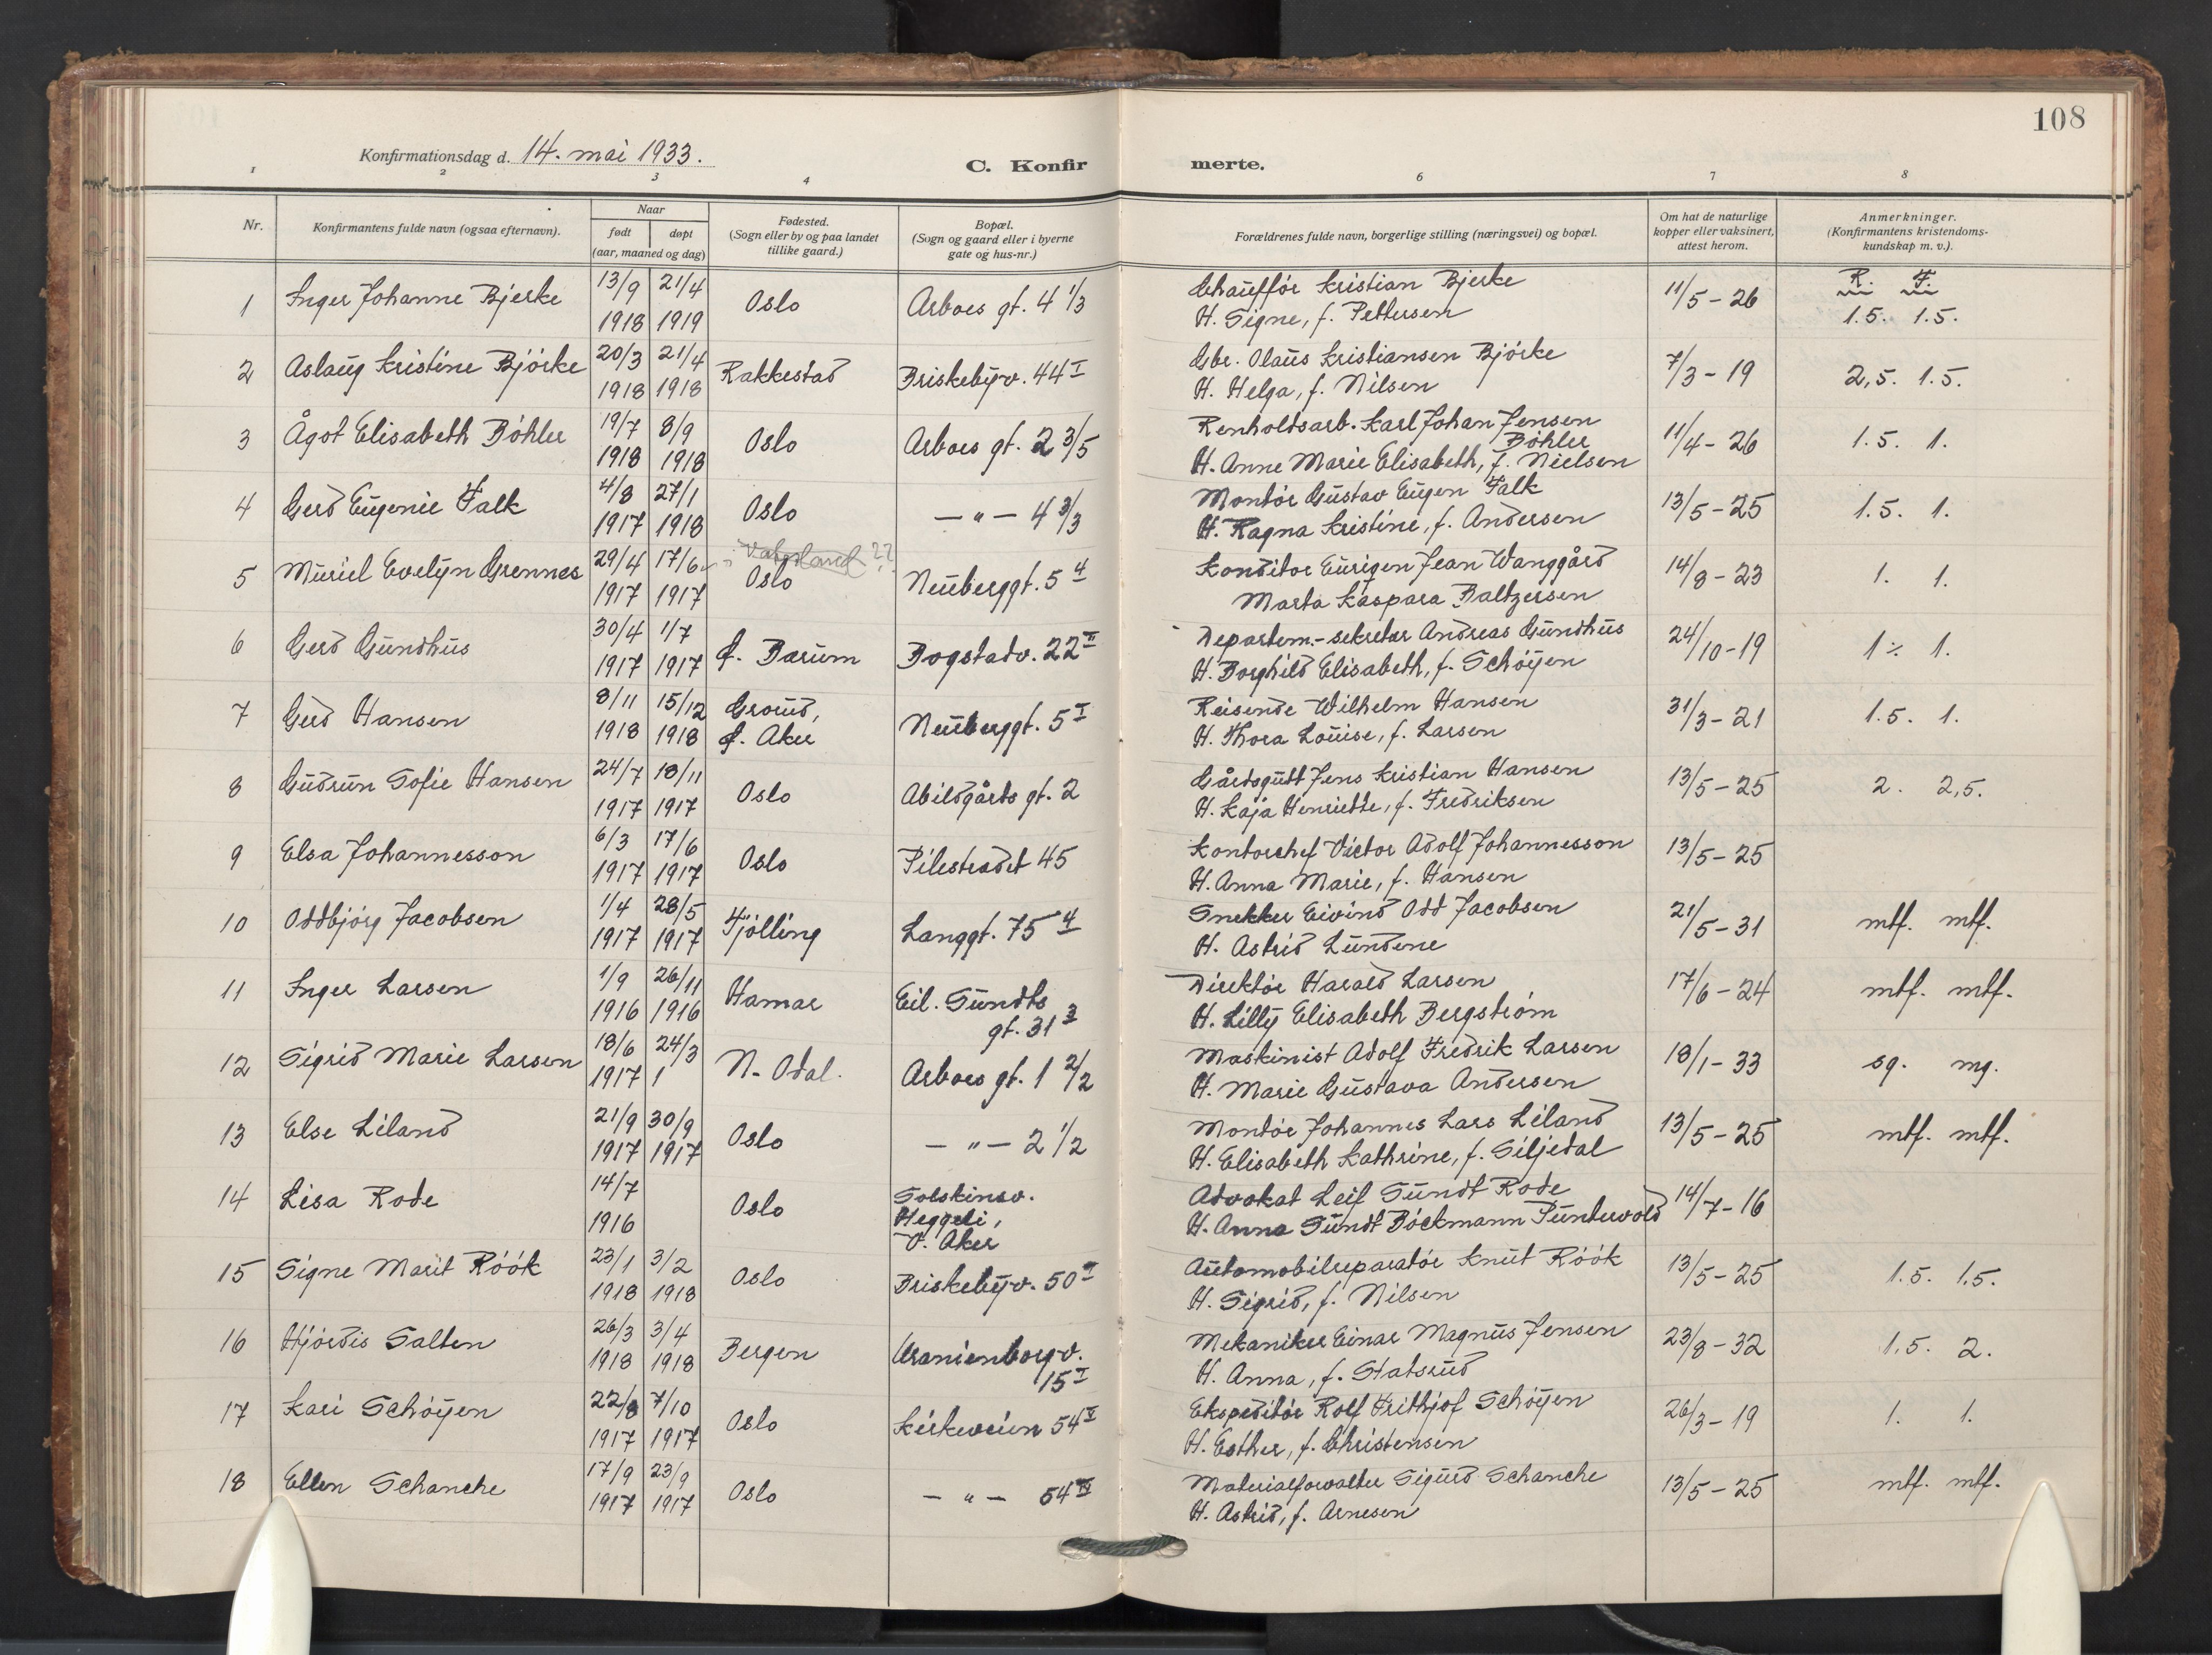 108
Konfirmationsdag d. 14. mai 1933.
C. Konfirmerte.
1 2 3 4 6 7 8
Nr.
Konfirmantens fulde navn (ogsaa efternavn).
Naar
født døpt
(aar, maaned og dag)
Fødested.
(Sogn eller by og paa landet
tillike gaard.)
Bopæl.
(Sogn og gaard eller i byerne
gate og hus-nr.)
Forældrenes fulde navn, borgerlige stilling (næringsvei) og bopæl.
Om hat de naturlige
kopper eller vaksinert,
attest herom.
Anmerkninger.
(Konfirmantens kristendoms-
kundskap m. v.).
R. F.
1 Inger Johanne Bjerke 13/9 1918 21/4 1919 Oslo Arboes gt. 4 1/3 Chauffør Kristian Bjerke 11/5-26 1.5. 1.5.
H. Signe, f. Pettersen
2 Aslaug Kristine Bjørke 20/3 1918 21/4 1918 Rakkestad Briskebyv. 44 I Gbr. Olaus Kristiansen Bjørke 7/3-19 2,5. 1.5.
H. Helga, f. Nilsen
3 Ågot Elisabeth Bøhler 19/7 1918 8/9 1918 Oslo Arboes gt. 2 3/5 Renholdsarb. Karl Johan Jensen 11/4-26 1.5. 1.
Bøhler
H. Anne Marie Elisabeth, f. Nielsen
4 Gerd Eugenie Falk 4/8 1917 27/1 1918 Oslo -"- 4 3/3 Montør Gustav Eugen Falk 13/5-25 1.5. 1.
H. Ragna Kristine, f. Andersen
5 Muriel Evelyn Grennes 29/4 1917 17/6 1917 ?? Oslo Neuberggt. 5 4 Konditor Eurigen Jean Wanggård 14/8-23 1. 1.
Marta Kaspara Baltzersen
6 Gerd Gundhus 30/4 1917 1/7 1917 Ø. Bærum Bogstadv. 22 II Departem.-sekretær Andreas Gundhus 24/10-19 1 ÷ 1.
H. Borghild Elisabeth, f. Schøyen
7 Gerd Hansen 8/11 1918 15/12 1918 Grorud, Neuberggt. 5 I Reisende Wilhelm Hansen 31/3-21 1.5. 1.
Ø. Aker H. Thora Louise, f. Larsen
8 Gudrun Sofie Hansen 24/7 1917 18/11 1917 Oslo Abildgårds gt. 2 Gårdsgutt Jens Kristian Hansen 13/5-25 2. 2,5.
H. Kaja Henriette, f. Fredriksen
9 Elsa Johannesson 6/3 1917 17/6 1917 Oslo Pilestrædet 45 Kontorchef Victor Adolf Johannesson 13/5-25
H. Anna Marie, f. Hansen
10 Oddbjørg Jacobsen 1/4 1917 28/5 1917 Tjølling Langgt. 75 4 Snekker Eivind Odd Jacobsen 21/5-31 mtf. mtf.
H. Astrid Lundene
11 Inger Larsen 1/9 1916 26/11 1916 Hamar Eil. Sundts Direktør Harald Larsen 17/6-24 mtf. mtf.
gt. 31 3 H. Lilly Elisabeth Bergstrøm
12 Sigrid Marie Larsen 18/6 1917 24/3 1 N. Odal. Arboes gt. 1 2/2 Maskinist Adolf Fredrik Larsen 18/1-33 sg. mg.
H. Marie Gustava Andersen
13 Else Liland 21/9 1917 30/9 1917 Oslo -"- 2 1/2 Montør Johannes Lars Liland 13/5-25 mtf. mtf.
H. Elisabeth Kathrine, f. Siljedal
14 Lisa Rode 14/7 1916 Oslo Solskinsv. Advokat Leif Sundt Rode 14/7-16
Heggeli, H. Anna Sundt Bøckmann Puntervold
V. Aker
15 Signe Marit Röök 23/1 1918 3/2 1918 Oslo Briskebyv. 50 II Automobilreparatør Knut Röök 13/5-25 1.5. 1.5.
H. Sigrid, f. Nilsen
16 Hjørdis Salten 26/3 1918 3/4 1918 Bergen Uranienborgv. Mekaniker Einar Magnus Jensen 23/8-32 1.5. 2.
15 I H. Anna, f. Statsrud
17 Kari Schøyen 22/8 1917 7/10 1917 Oslo Kirkeveien 54 II Ekspeditør Rolf Frithjof Schøyen 26/3-19 1. 1.
H. Esther, f. Christensen
18 Ellen Schanche 17/9 1917 23/9 1917 Oslo -"- 54 IV Materialforvalter Sigurd Schanche 13/5-25 mtf. mtf.
H. Astrid, f. Arnesen